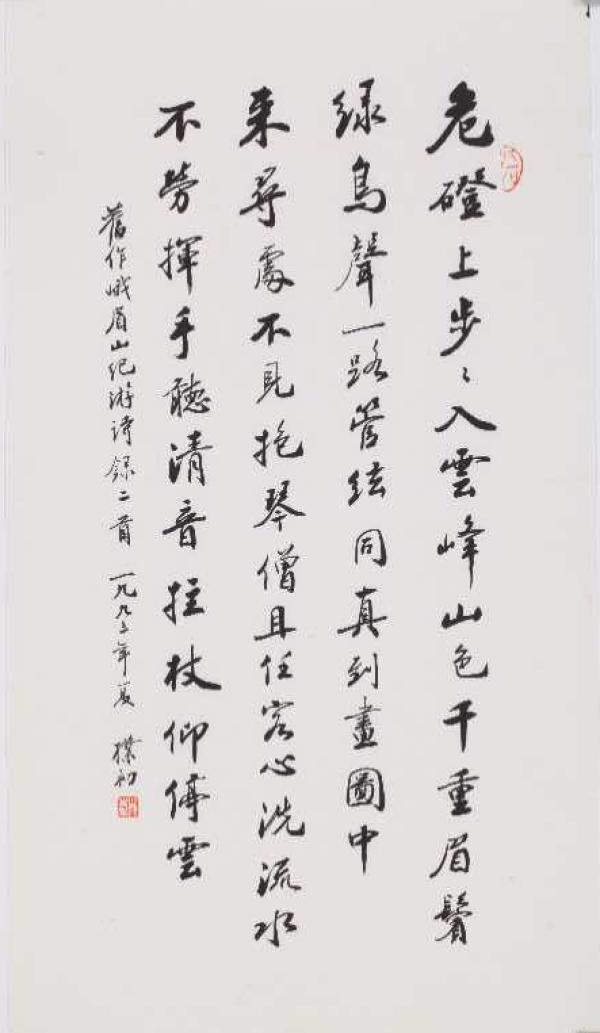 危磴上步〻入雲峰山色千重眉鬢
绿鳥聲一路管絃同真到畫圖中
来尋處不見抱琴僧且任客心洗流水
不勞揮手聽清音拄杖仰停雲
舊作峨眉山纪游诗録二首 一九九二年夏 樸初